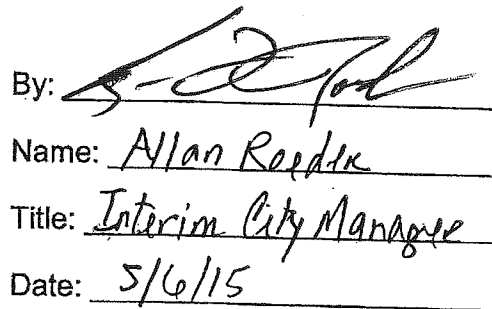 By:
Name: Allan Roeder
Title: Interim City Manager
Date: 5/6/15